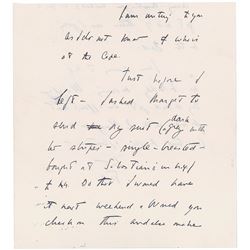 I am writing to you
as I do not know if who is
at the Cape.
Just before I
left - I asked Margot to
send my suit (dark grey with
stripes - single - breasted -
bought at in
to Mr. Do that I would have
it next weekend. Would you
check on this and also make